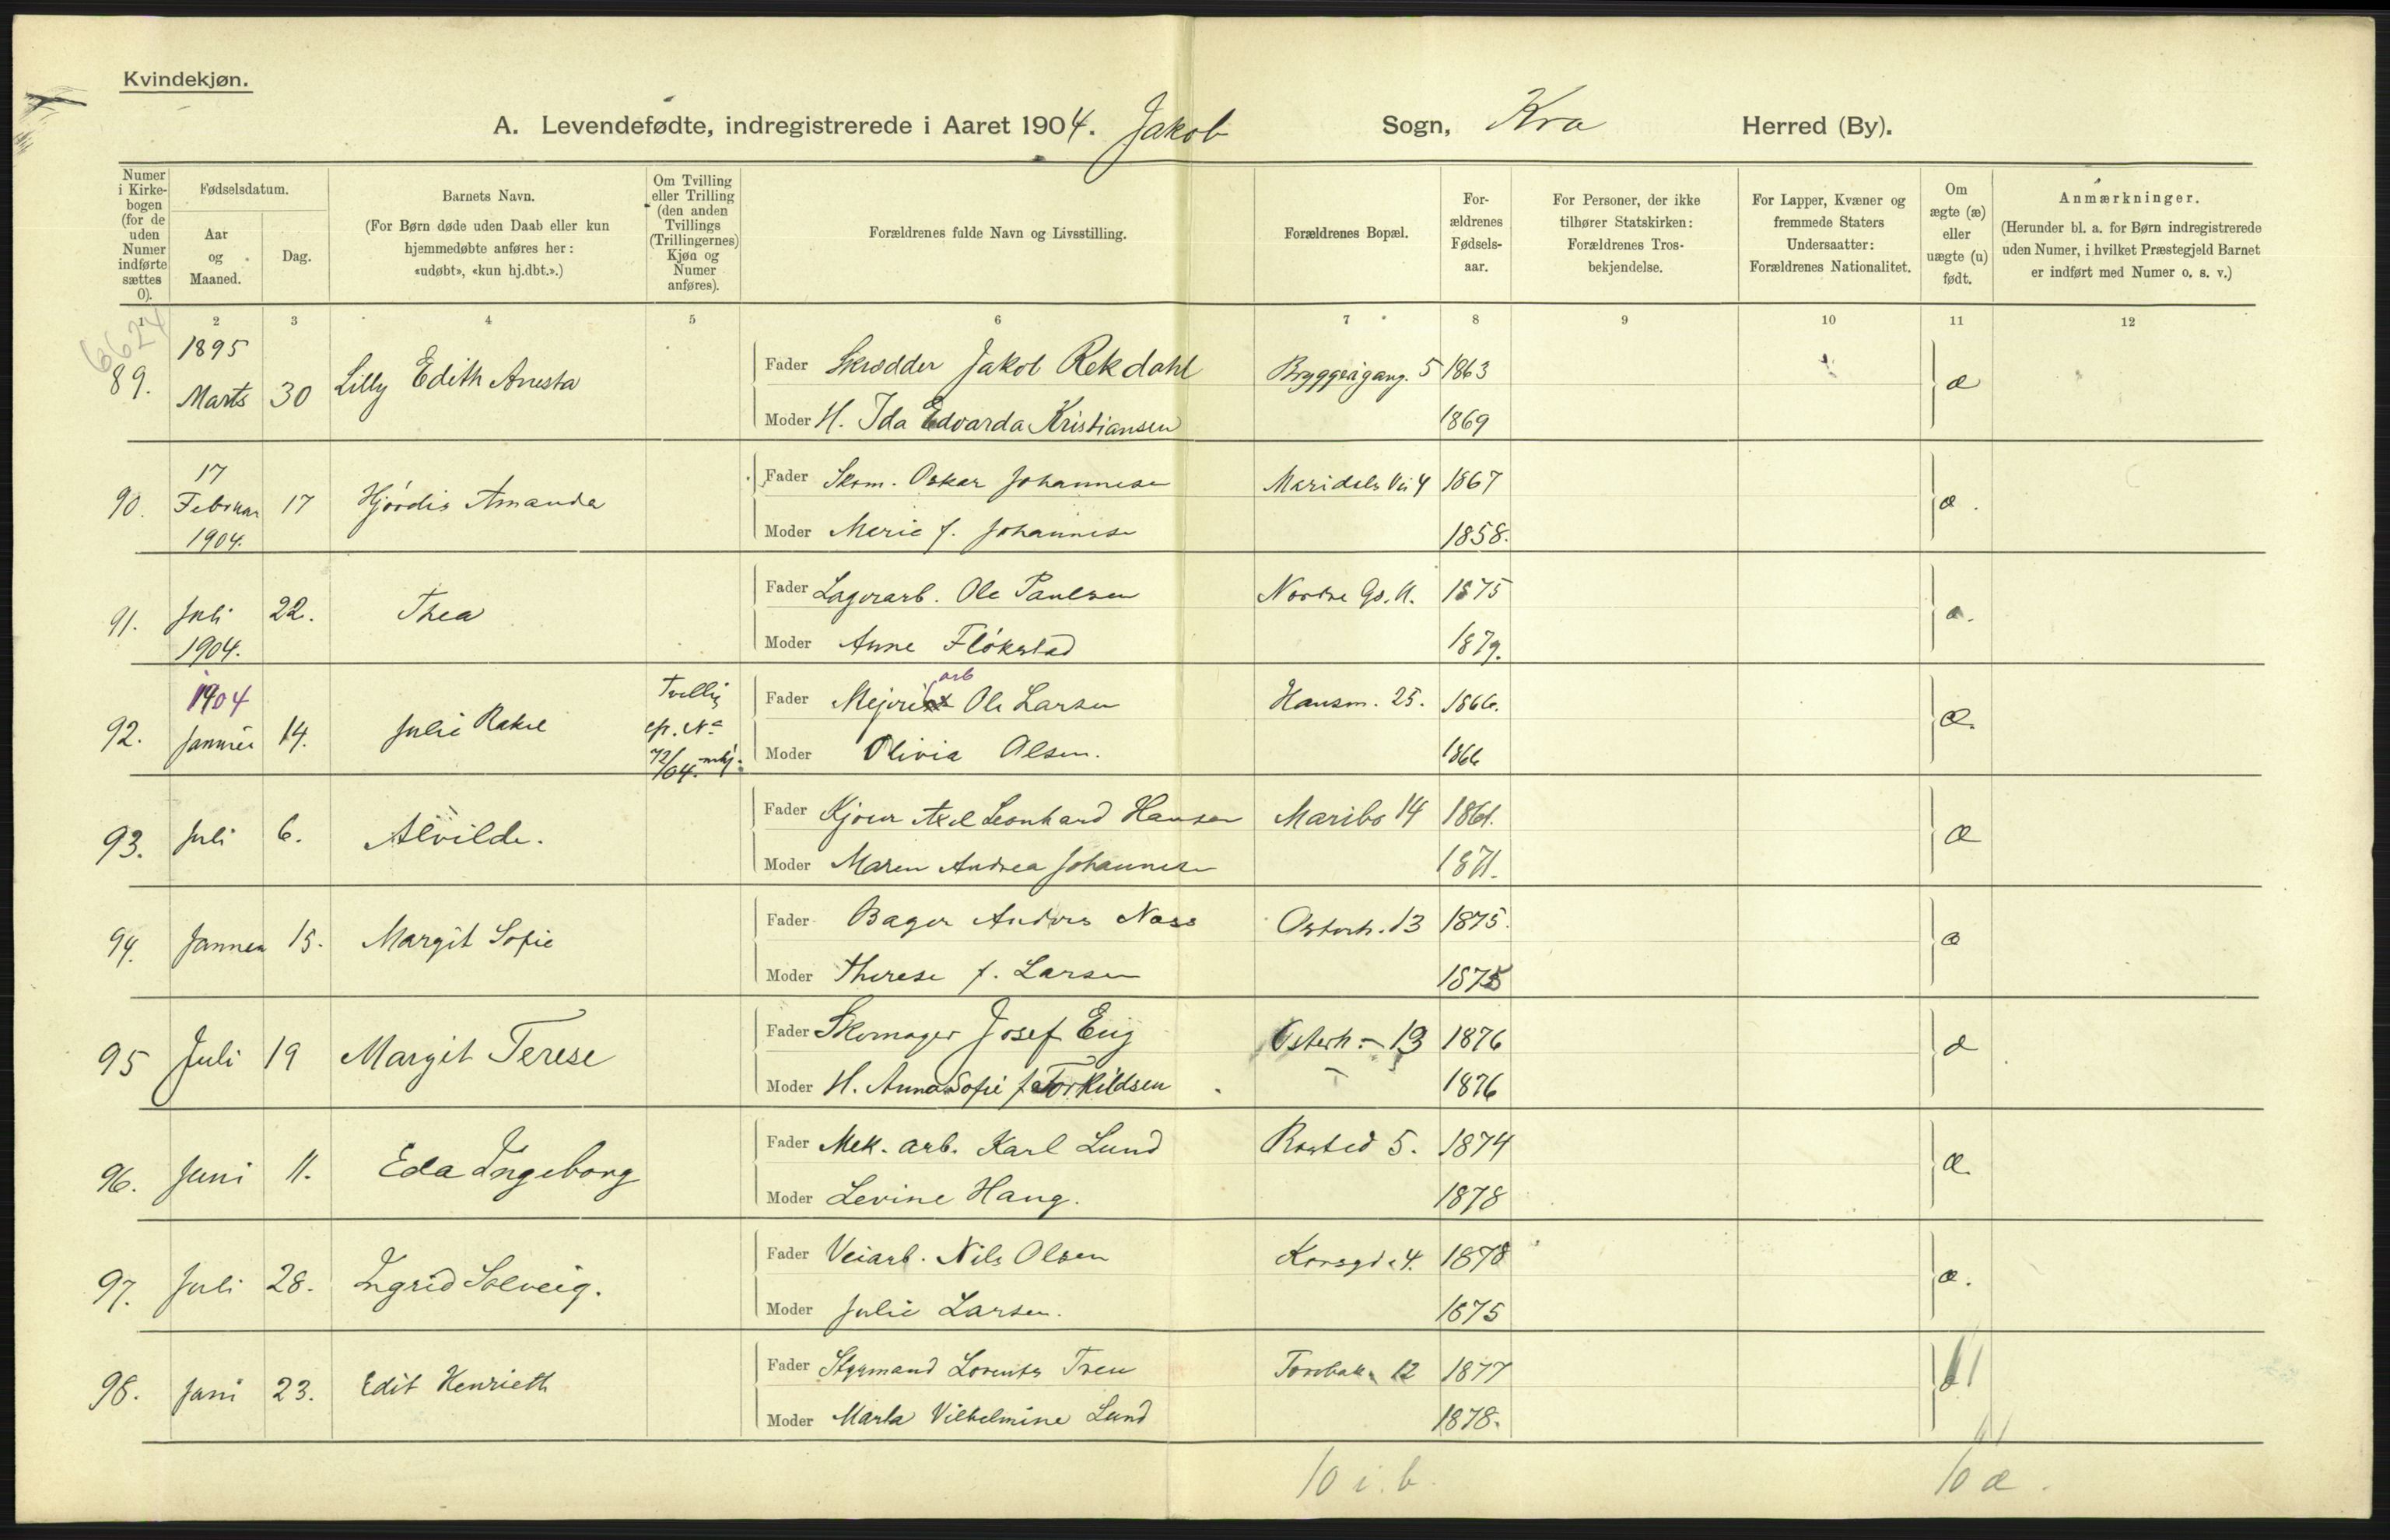 Kvindekjøn.
A. Levendefødte, indregistrerede i Aaret 1904. Jakob Sogn, Kra Herred (By).
Numer i Kirkebogen (for de uden Numer indførte sættes 0).
Fødselsdatum.
Aar og Maaned.
Dag.
Barnets Navn.
(For Børn døde uden Daab eller kun hjemmedøbte anføres her: «udøbt», «kun hj.dbt.».)
Om Tvilling eller Trilling (den anden Tvillings (Trillingernes) Kjøn og Numer anføres).
Forældrenes fulde Navn og Livsstilling.
Forældrenes Bopæl.
Forældrenes Fødselsaar.
For Personer, der ikke tilhører Statskirken: Forældrenes Trosbekjendelse.
For Lapper, Kvæner og fremmede Staters Undersaatter: Forældrenes Nationalitet.
Om ægte (æ) eller uægte (u) født.
Anmærkninger.
(Herunder bl. a. for Børn indregistrerede uden Numer, i hvilket Præstegjeld Barnet er indført med Numer o. s. v.)
1 2 3 4 5 6 7 8 9 10 11 12
6624
89. 1895 Marts 30 Lilly Edith Anesta Fader Skrædder Jakob Rekdahl Bryggerigang. 5 1863 æ
Moder H. Ida Edvarda Kristiansen 1869
90. 17 Februar 1904. 17 Hjördis Amanda Fader Skom. Oskar Johannesen Maridals Vei 4 1867 æ.
Moder Marie f. Johannesen 1858.
91. Juli 1904. 22. Thea Fader Lagerarb. Ole Paulsen Nordre 1875 æ.
Moder Anne Flökstad 1879.
92. 1904 Januar 14. Julie Rakel Tvilling cfr. No 72/04. mkj. Fader Meieri arb Ole Larsen Hausm. 25. 1866. æ.
Moder Olivia Olsen. 1866
93. Juli 6. Alvilde. Fader Kjører Axel Leonhard Hansen Maribo 14 1861. æ
Moder Maren Andrea Johannesen 1871.
94. Januar 15. Margit Sofie Fader Bager Anders Næss Osterh. 13 1875. æ
Moder Therese f. Larsen 1875
95 Juli 19 Margit Terese Fader Skomager Josef Eng Osterh. - 13 1876 æ
Moder H. Anna Sofie f. Torkildsen - 1876
96. Juni 11. Eda Ingeborg Fader Mek. arb. Karl Lund Rosted 5. 1874 æ.
Moder Levine Haug. 1878
97. Juli 28. Ingrid Solveig. Fader Veiarb. Nils Olsen Korsgd. 4. 1878 æ.
Moder Julie Larsen. 1875
98. Juni 23. Edit Henrieth Fader Styrmand Lorents Treu Torvbak. 12 1877
Moder Marta Vilhelmine Lund 1878.
10 i. b. 10 æ.